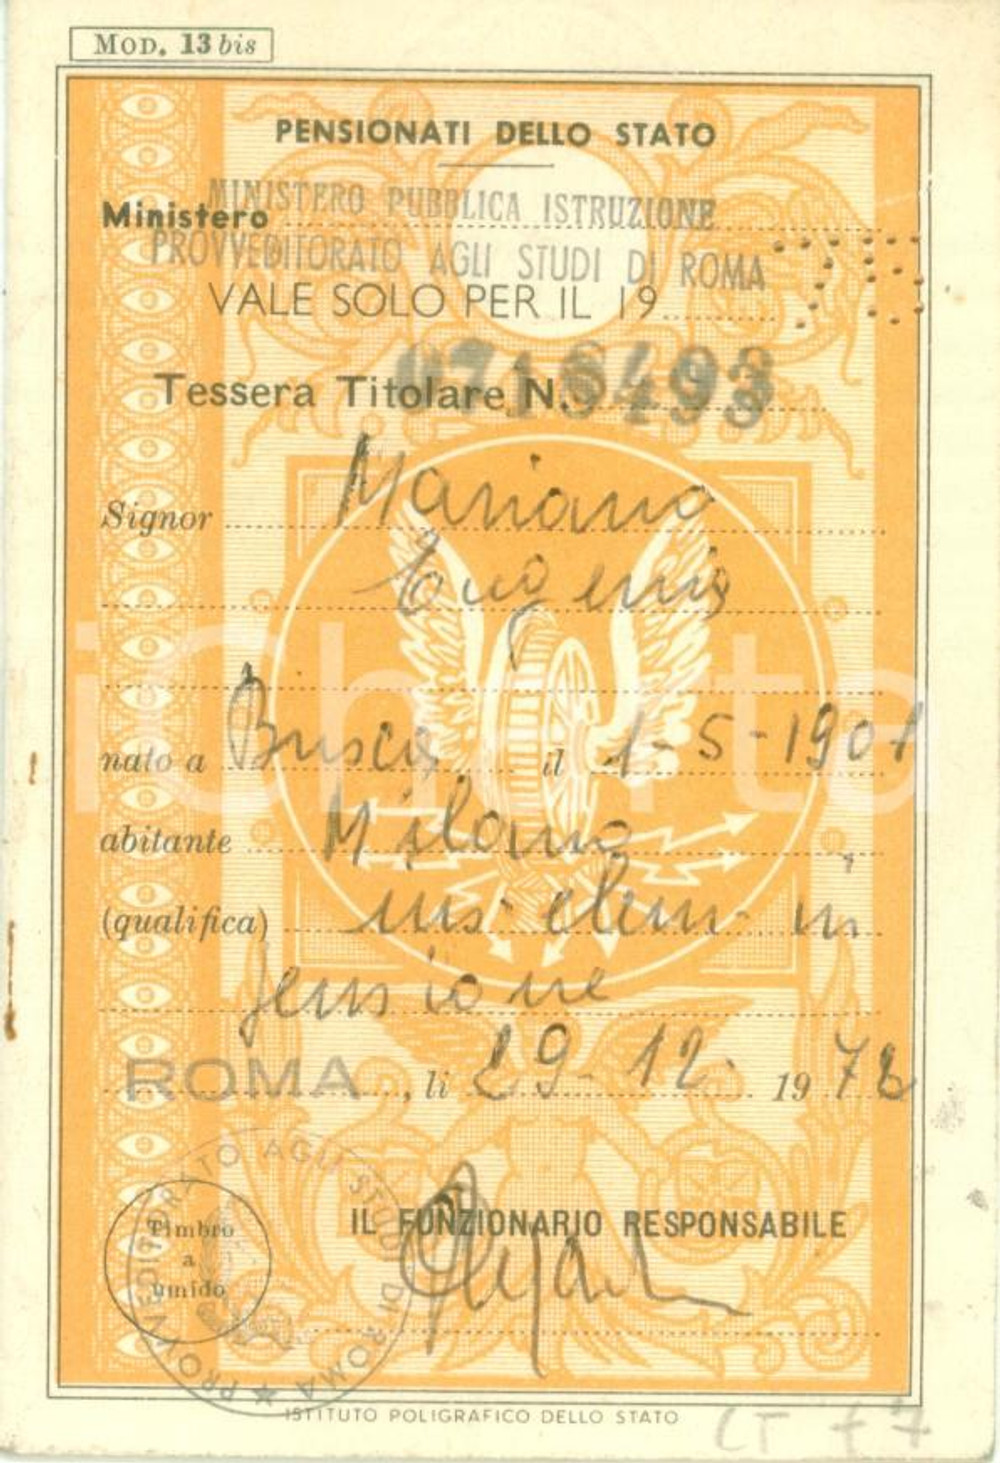 MOD. 13 bis
PENSIONATI DELLO STATO
Ministero MINISTERO PUBBLICA ISTRUZIONE
PROVVEDITORATO AGLI STUDI DI ROMA
VALE SOLO PER IL 19
Tessera Titolare N. 0716493
Signor Mariano
Eugenio
iCharta
nato a Busca il 1-5-1901
abitante Milano
(qualifica) ins. elem. in
pensione
ROMA, li 29-12-1972
PROVVEDITORATO AGLI STUDI DI ROMA
Timbro
a
umido
IL FUNZIONARIO RESPONSABILE
ISTITUTO POLIGRAFICO DELLO STATO